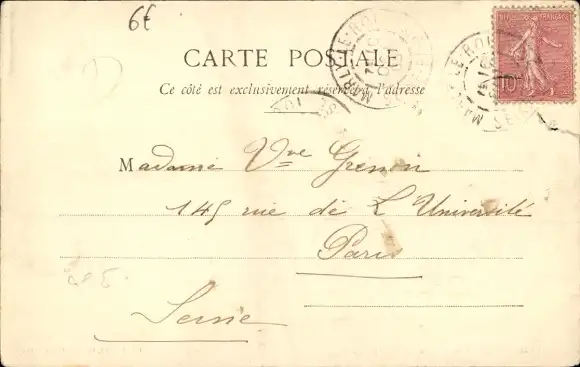 6f
CARTE POSTALE
Ce côté est exclusivement réservé à l'adresse
MARLY-LE-ROI
REPUBLIQUE FRANÇAISE
10
MARLY-LE-ROI
Madame Vve Grenon
145 rue de L'Université
Paris
Seine